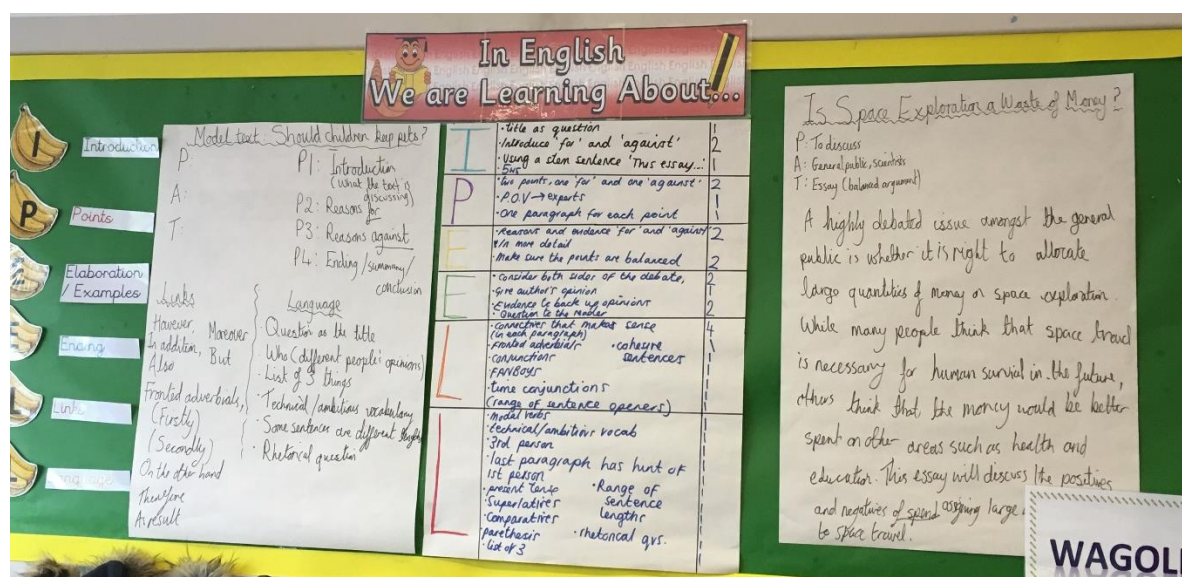 In English
We are Learning About...
I
Introduction
P
Points
Elaboration
/ Examples
Ending
Links
Language
Model text Should children keep pets?
P:
A:
T:
P1: Introduction
(What the text is
discussing)
P2: Reasons for
P3: Reasons against
P4: Ending/summary/
conclusion
Links
However
In addition, Moreover
Also But
Fronted adverbials,
(Firstly)
(Secondly)
On the other hand
Therefore
As result
Language
· Question as the title
· Who (different people's opinions)
· List of 3 things
· Technical/ambitious vocabulary
· Some sentences are different lengths
· Rhetorical question
I
· title as question 1
· Introduce 'for' and 'against' 2
· Using a stem sentence 'This essay...' 1
· 5Ws 1
P
· two points, one 'for' and one 'against' 2
· P.O.V → experts 1
· One paragraph for each point 1
E
· Reasons and evidence 'for' and 'against' 2
in more detail
· Make sure the points are balanced 2
E
· Consider both sides of the debate, 2
· Give author's opinion 1
· Evidence to back up opinions 2
· Question to the reader
L
· Connectives that makes sense 4
(in each paragraph)
· Fronted adverbials · cohesive
· conjunctions sentences
· FANBOYS
· time conjunctions
(range of sentence openers)
L
· modal verbs
· technical/ambitious vocab
· 3rd person
· last paragraph has hint of
1st person
· present tense · Range of
· Superlatives sentence
· Comparatives lengths
parethesis · rhetorical qus.
· list of 3
Is Space Exploration a Waste of Money?
P: To discuss
A: General public, scientists
T: Essay (balanced argument)
A highly debated issue amongst the general
public is whether it is right to allocate
large quantities of money on space exploration.
While many people think that space travel
is necessary for human survival in the future,
others think that the money would be better
spent on other areas such as health and
education. This essay will discuss the positives
and negatives of spend assigning large
to space travel.
WAGOLL